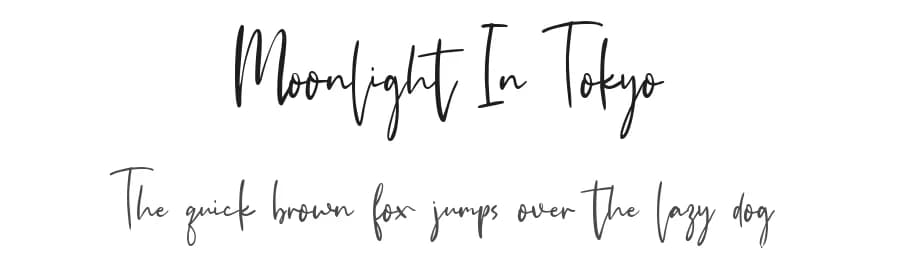 Moonlight In Tokyo
The quick brown fox jumps over the lazy dog